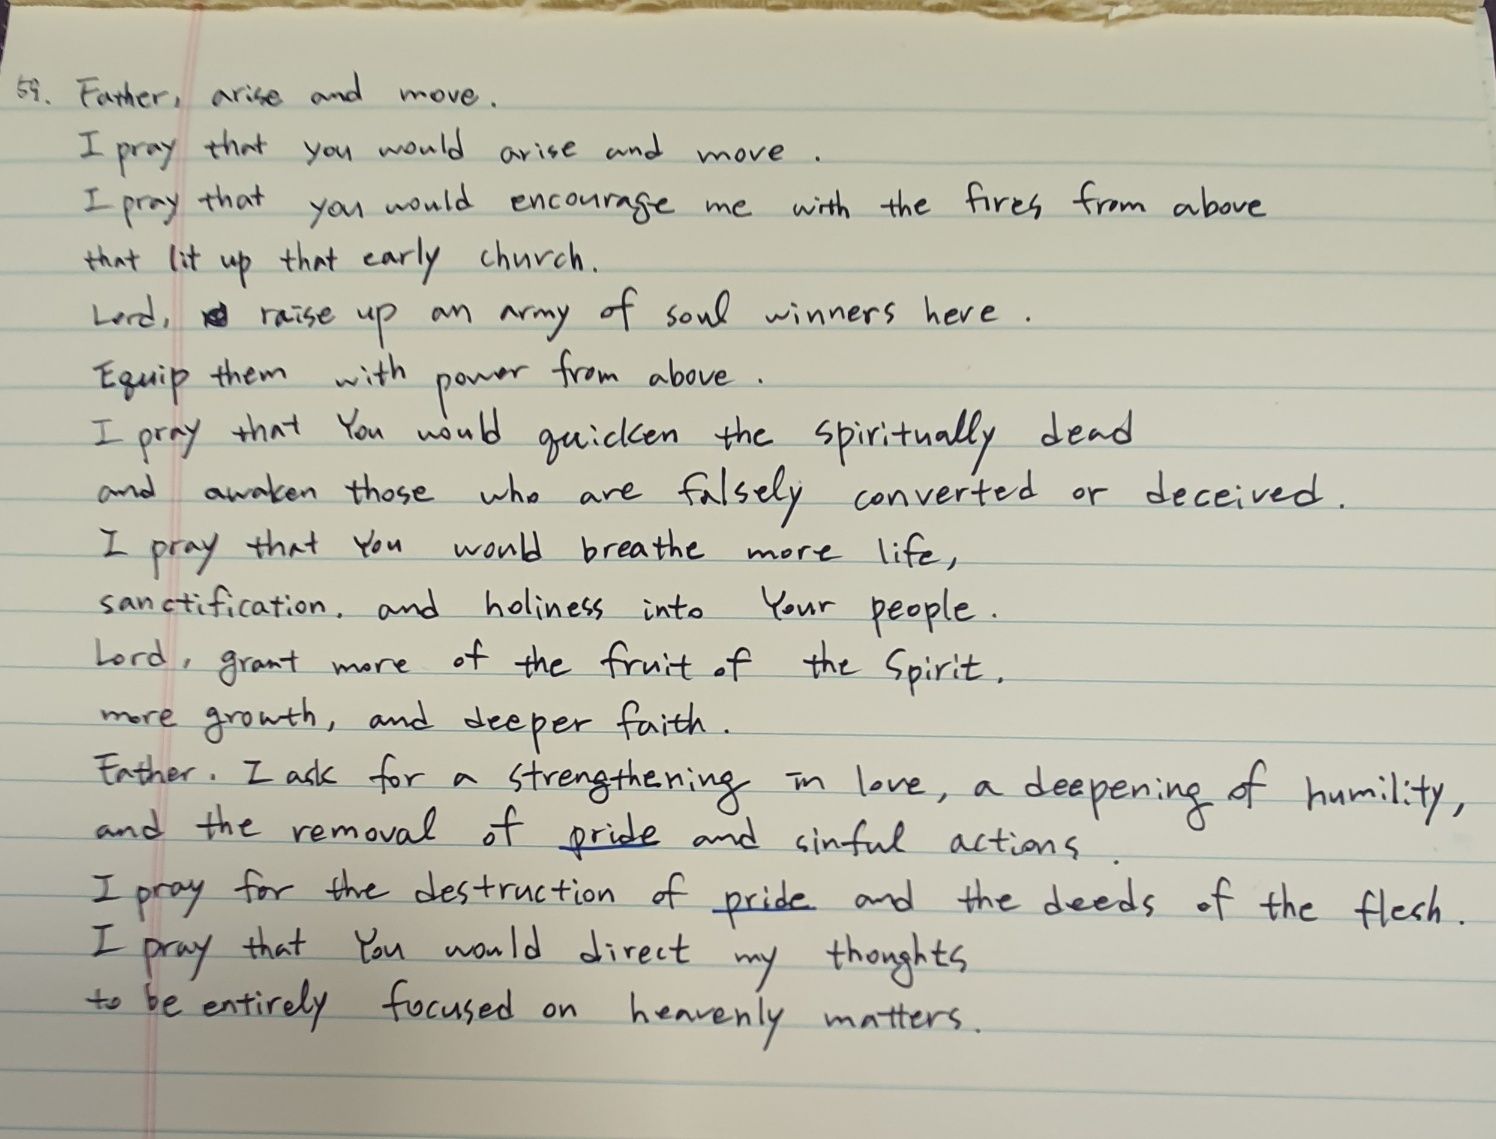 59. Father, arise and move.
I pray that you would arise and move.
I pray that you would encourage me with the fires from above
that lit up that early church.
Lord, raise up an army of soul winners here.
Equip them with power from above.
I pray that You would quicken the spiritually dead
and awaken those who are falsely converted or deceived.
I pray that You would breathe more life,
sanctification, and holiness into Your people.
Lord, grant more of the fruit of the Spirit,
more growth, and deeper faith.
Father, I ask for a strengthening in love, a deepening of humility,
and the removal of pride and sinful actions.
I pray for the destruction of pride and the deeds of the flesh.
I pray that You would direct my thoughts
to be entirely focused on heavenly matters.